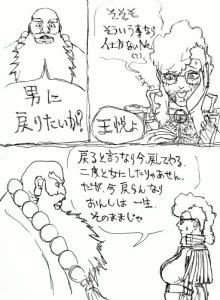 そそそ
そういう事なら
仕方ないNe
(?)
男に
戻りたいか?
王悦よ
戻ると言うなら今戻してやる。
二度と女にしたりゃあせん。
だが、今戻らんなら
おんしは一生
そのままじゃ